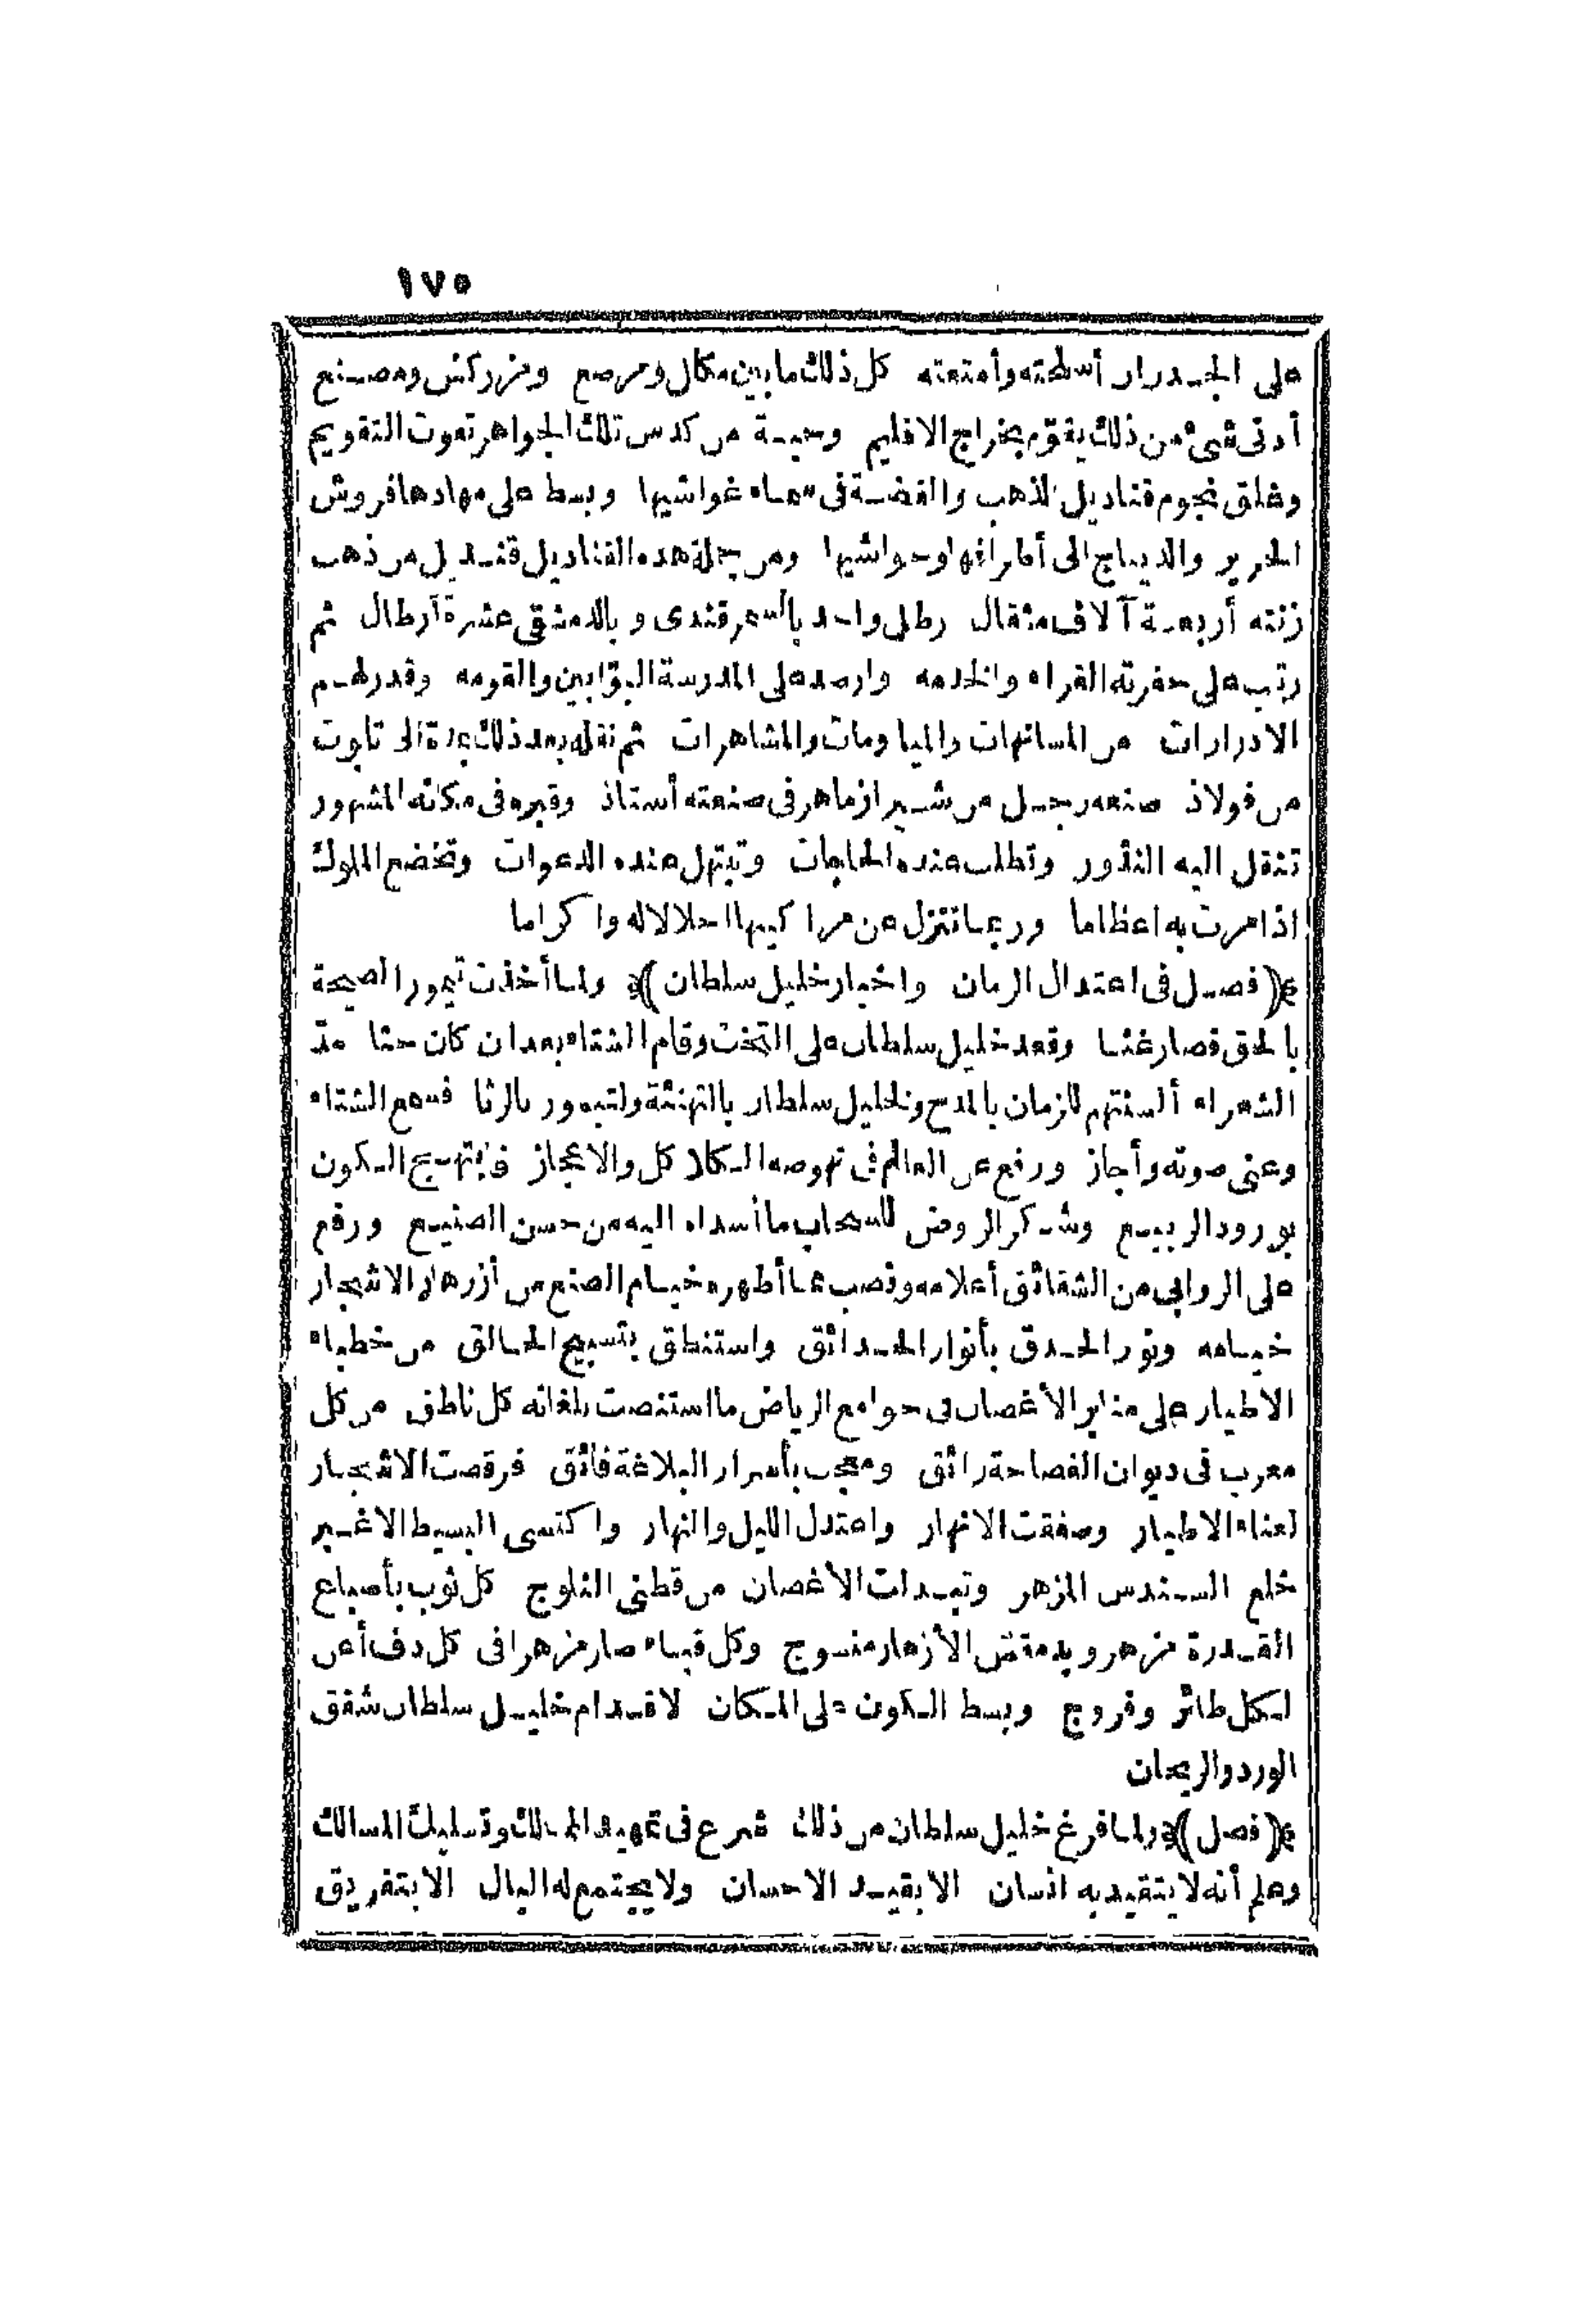 ١٧٥
على الجـدرار أسلحته وأمتعته كل ذلك ما بين مكال ومرصع ومزركش ومصـنع
أدنى شئ من ذلك يقوّم بخراج الاقليم وحبـة من كدس تلك الجواهر تفوت التقويم
وعلق نجوم قناديل الذهب والفضـة فى سماء غواشيها وبسط على مهادها فروش
الحرير والديباج الى أطرافها وحواشيها ومن جملة هذه القناديل قنـديل من ذهب
زنته أربعـة آلاف مثقال رطل واحد بالسمرقندى وبالدمشقى عشرة أرطال ثم
رتب على حفرته القراء والخدمه وارصد على المدرسة البوّابين والقومه وقدر لهـم
الادرارات من المسانهات والمياومات والمشاهرات ثم نقله بعد ذلك بمدة الى تابوت
من فولاذ صنعه رجـل من شـيراز ماهر فى صنعته أستاذ وقبره فى مكانه المشهور
تنقل اليه النذور وتطلب عنده الحاجات وتبتهل عنده الدعوات وتخضع الملوك
اذا مرت به اعظاما وربما تنزل عن مراكبها اجلالا له واكراما
﴿فصـل فى اعتدال الزمان واخبار خليل سلطان﴾ ولما أخذت تيمور الصيحة
بالحق فصار غثـا وقعد خليل سلطان على التخت وقام الشتاء بعد ان كان جثا مدّ
الشعراء ألسنتهم للزمان بالمدح ولخليل سلطان بالتهنئة ولتيمور بالرثا فسمع الشتاء
وعنى صوته وأجاز ورفع عن العالم فى نهوضه الـكلا كل والاعجاز فابتهـج الـكون
بورود الربيـع وشـكر الروض للسحاب ما أسداه اليه من حسن الصنيـع ورقم
على الروابى من الشقائق أعلامه ونصب مما أظهره خيـام الصنع من أزرهار الاشجار
خيـامه ونور الحـدق بأنوار الحـدائق واستنطق بتسبيح الخـالق من خطباء
الاطيار على منابر الأغصان فى جوامع الرياض ما استنصت بلغاته كل ناطق من كل
معرب فى ديوان الفصاحة رائق ومعجب بأسرار البلاغة فائق فرقصت الاشجـار
لغناء الاطيار وصفقت الانهار واعتدل الليل والنهار واكتسى البسيط الاغـبر
خلع السـندس المزهر وتبـدلت الاغصان من قطنى الثلوج كل ثوب بأصباغ
القـدرة مزهر وبدمقس الأزهار منسوج وكل قبـاء صار مزهرا فى كل دف أعن
لـكل طائر وفروج وبسط الـكون على المـكان لاقـدام خليـل سلطان شقق
الورد والريحان
﴿فصل﴾ ولما فرغ خليل سلطان من ذلك شرع فى تمهيد الممالك وتسليك المسالك
وعلم أنه لا يتقيد به انسان الا بقيـد الاحسان ولا يجتمع له البال الا بتفريق